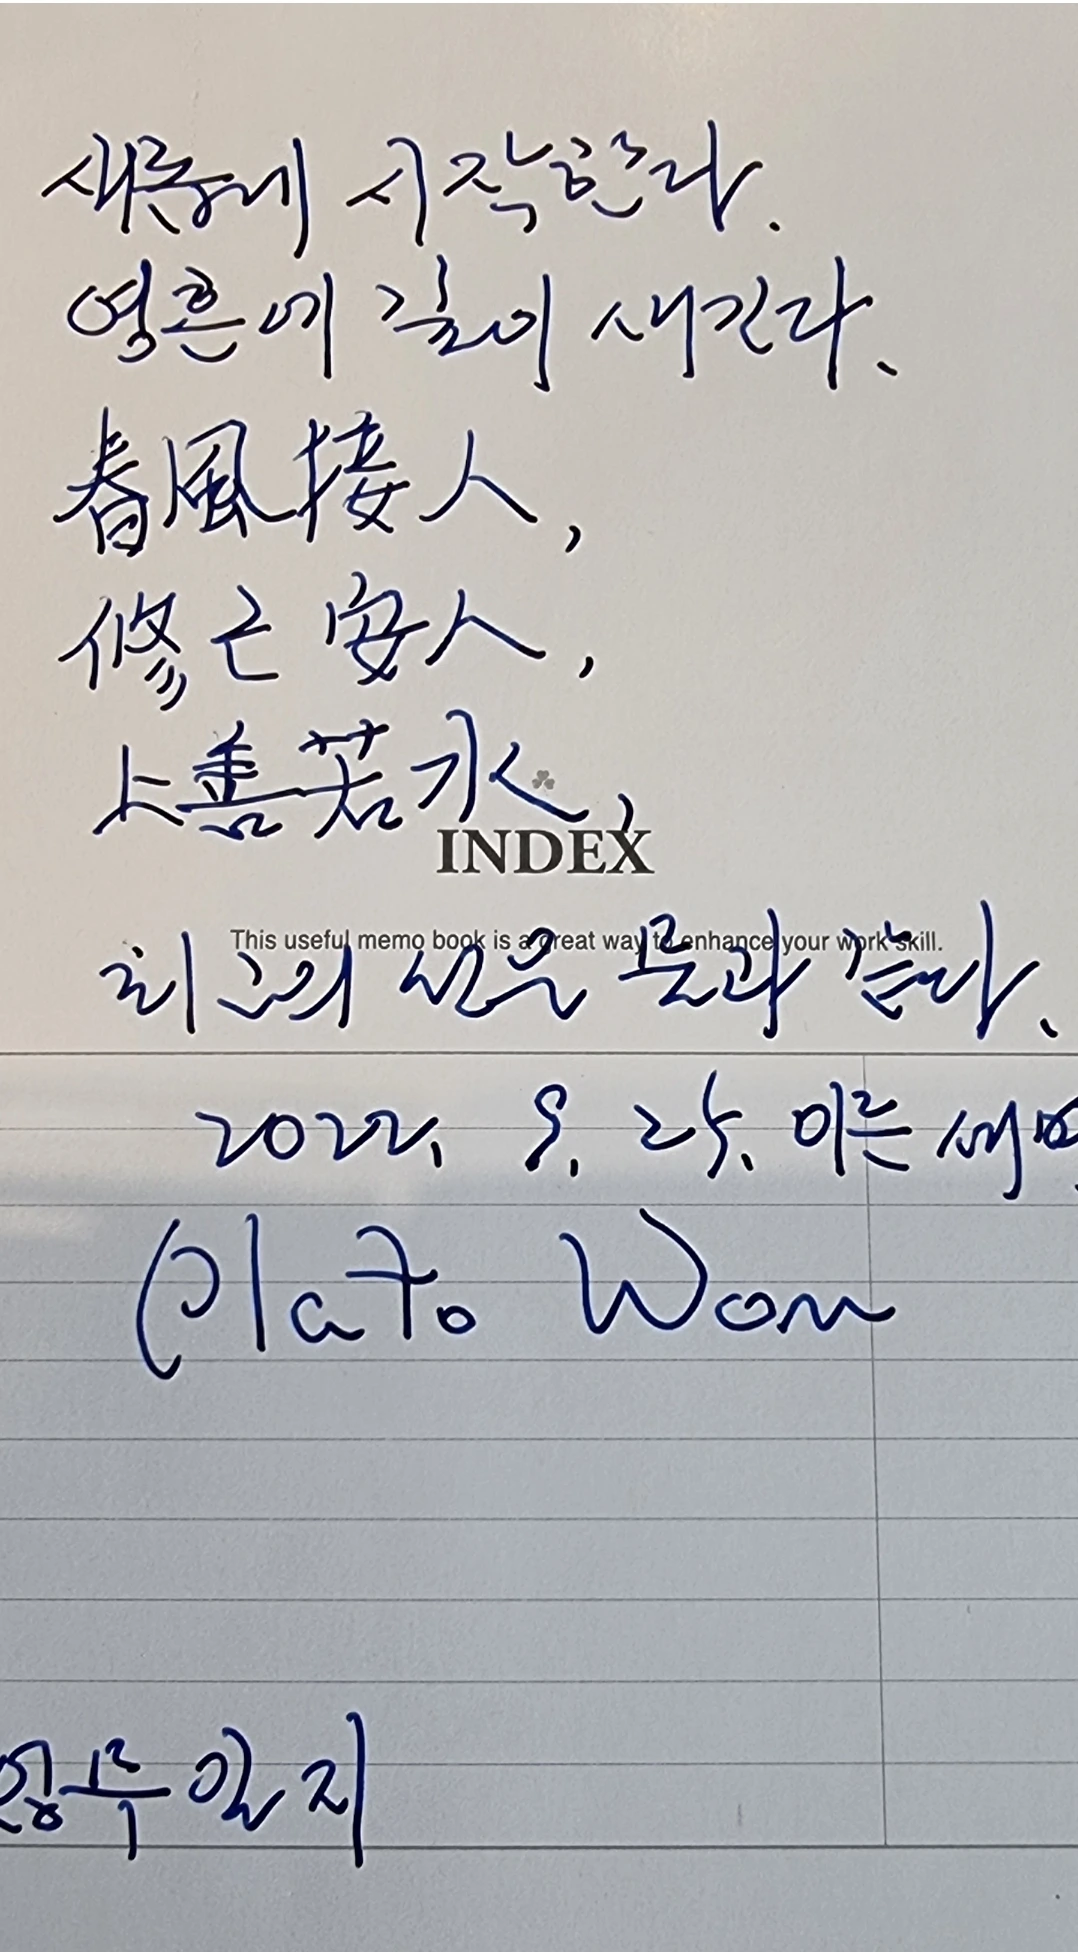 새롭게 시작한다.
영혼에 깊이 새긴다.
春風接人,
修己安人,
上善若水,
INDEX
This useful memo book is a great way to enhance your work skill.
최고의 선은 물과 같다.
2022. 9. 25. 이른 새벽
Plato Won
업무일지